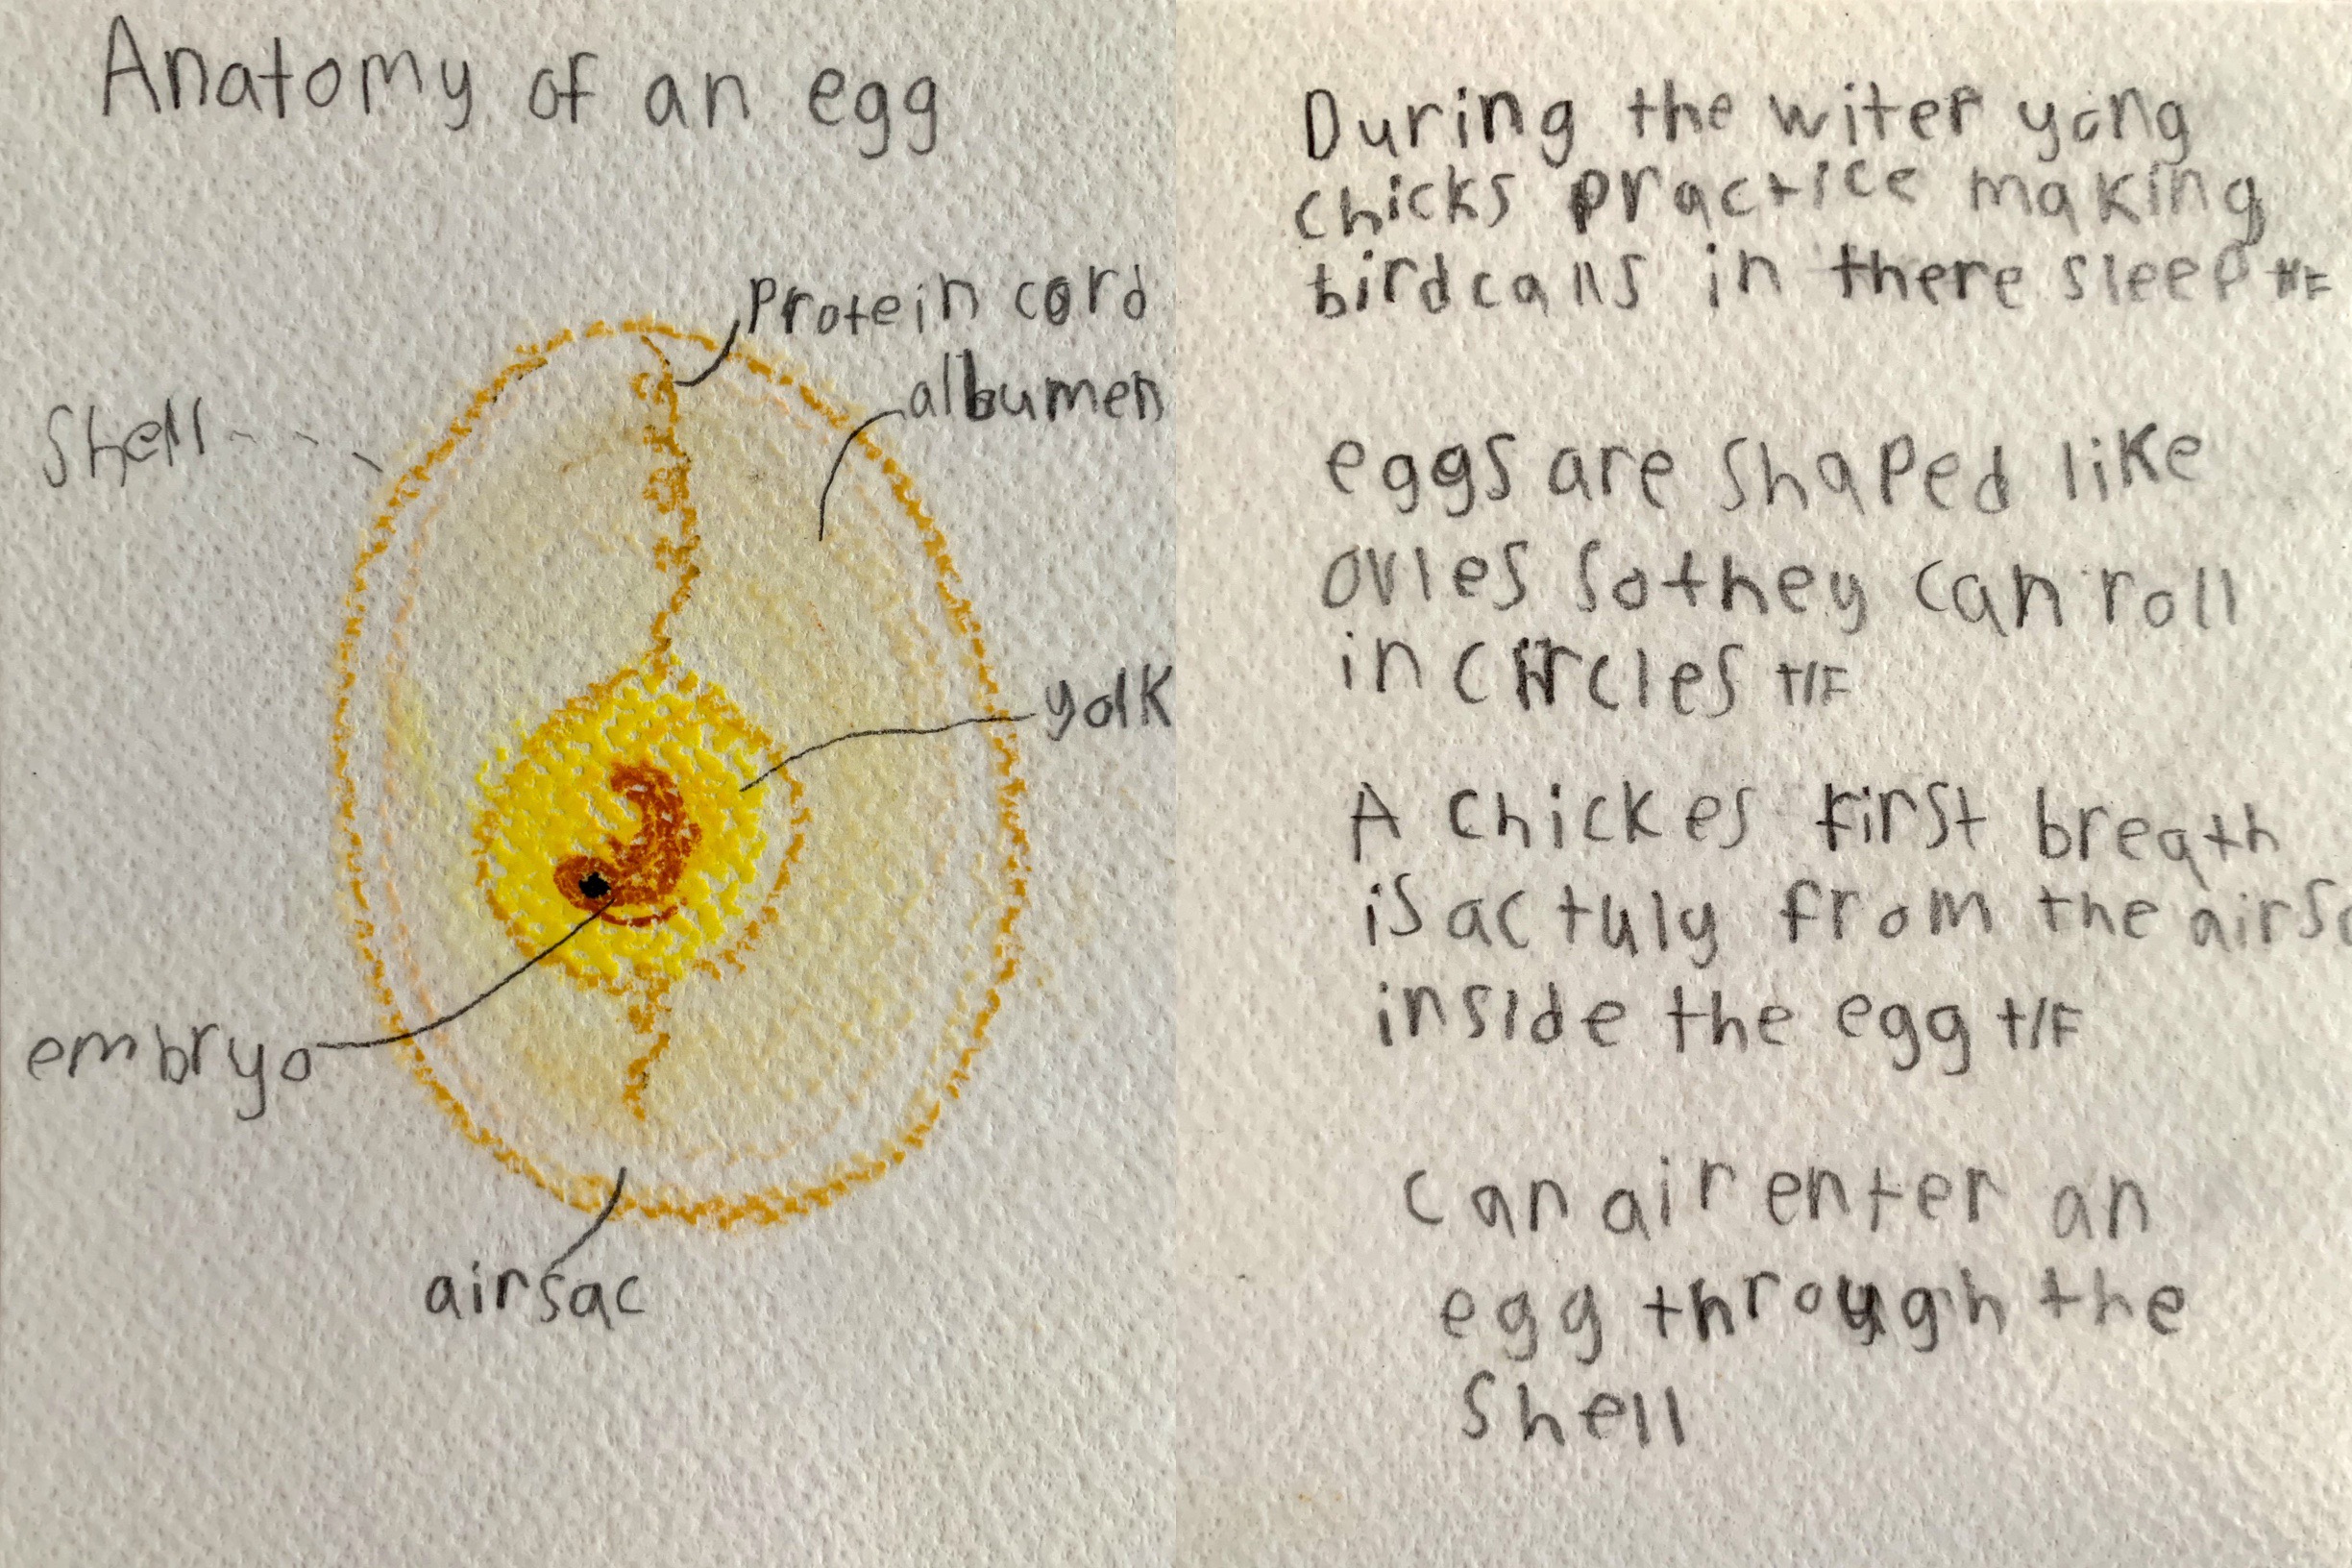 Anatomy of an egg
protein cord
albumen
Shell
yolk
embryo
airsac
During the witer yong
chicks practice making
birdcalls in there sleep t/F
eggs are shaped like
ovles so they can roll
in circles t/F
A chickes first breath
is actuly from the airsa
inside the egg t/F
can air enter an
egg through the
shell